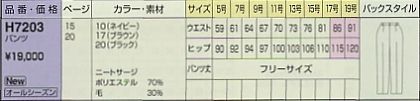 品番・価格 ページ カラー・素材 サイズ 5号 7号 9号 11号 13号 15号 17号 19号 バックスタイル
H7203
パンツ
¥19,000
New
オールシーズン
15
20
10(ネイビー)
17(ブラウン)
20(ブラック)
ニートサージ
ポリエステル 70%
毛 30%
ウエスト 59 61 64 67 70 73 76 81 86 91
ヒップ 90 92 94 97 100 103 106 110 115 120
パンツ丈 フリーサイズ